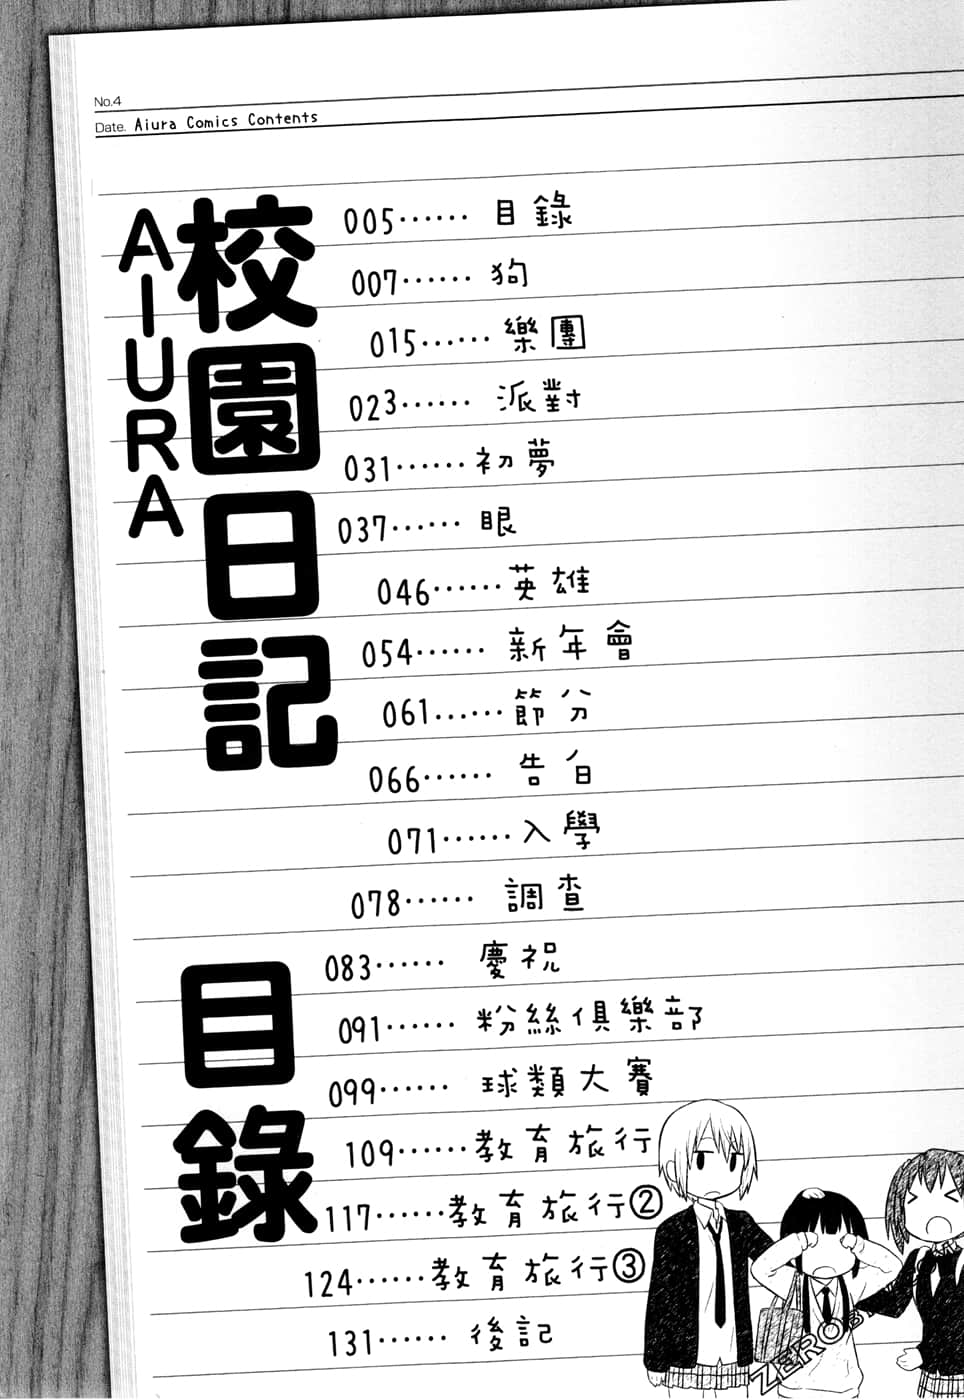 No.4
Date. Aiura Comics Contents
校園日記
AIURA
目錄
005‥‥‥ 目錄
007‥‥‥ 狗
015‥‥‥ 樂團
023‥‥‥ 派對
031‥‥‥ 初夢
037‥‥‥ 眼
046‥‥‥ 英雄
054‥‥‥ 新年會
061‥‥‥ 節分
066‥‥‥ 告白
071‥‥‥ 入學
078‥‥‥ 調查
083‥‥‥ 慶祝
091‥‥‥ 粉絲俱樂部
099‥‥‥ 球類大賽
109‥‥‥ 教育旅行
117‥‥‥ 教育旅行②
124‥‥‥ 教育旅行③
131‥‥‥ 後記